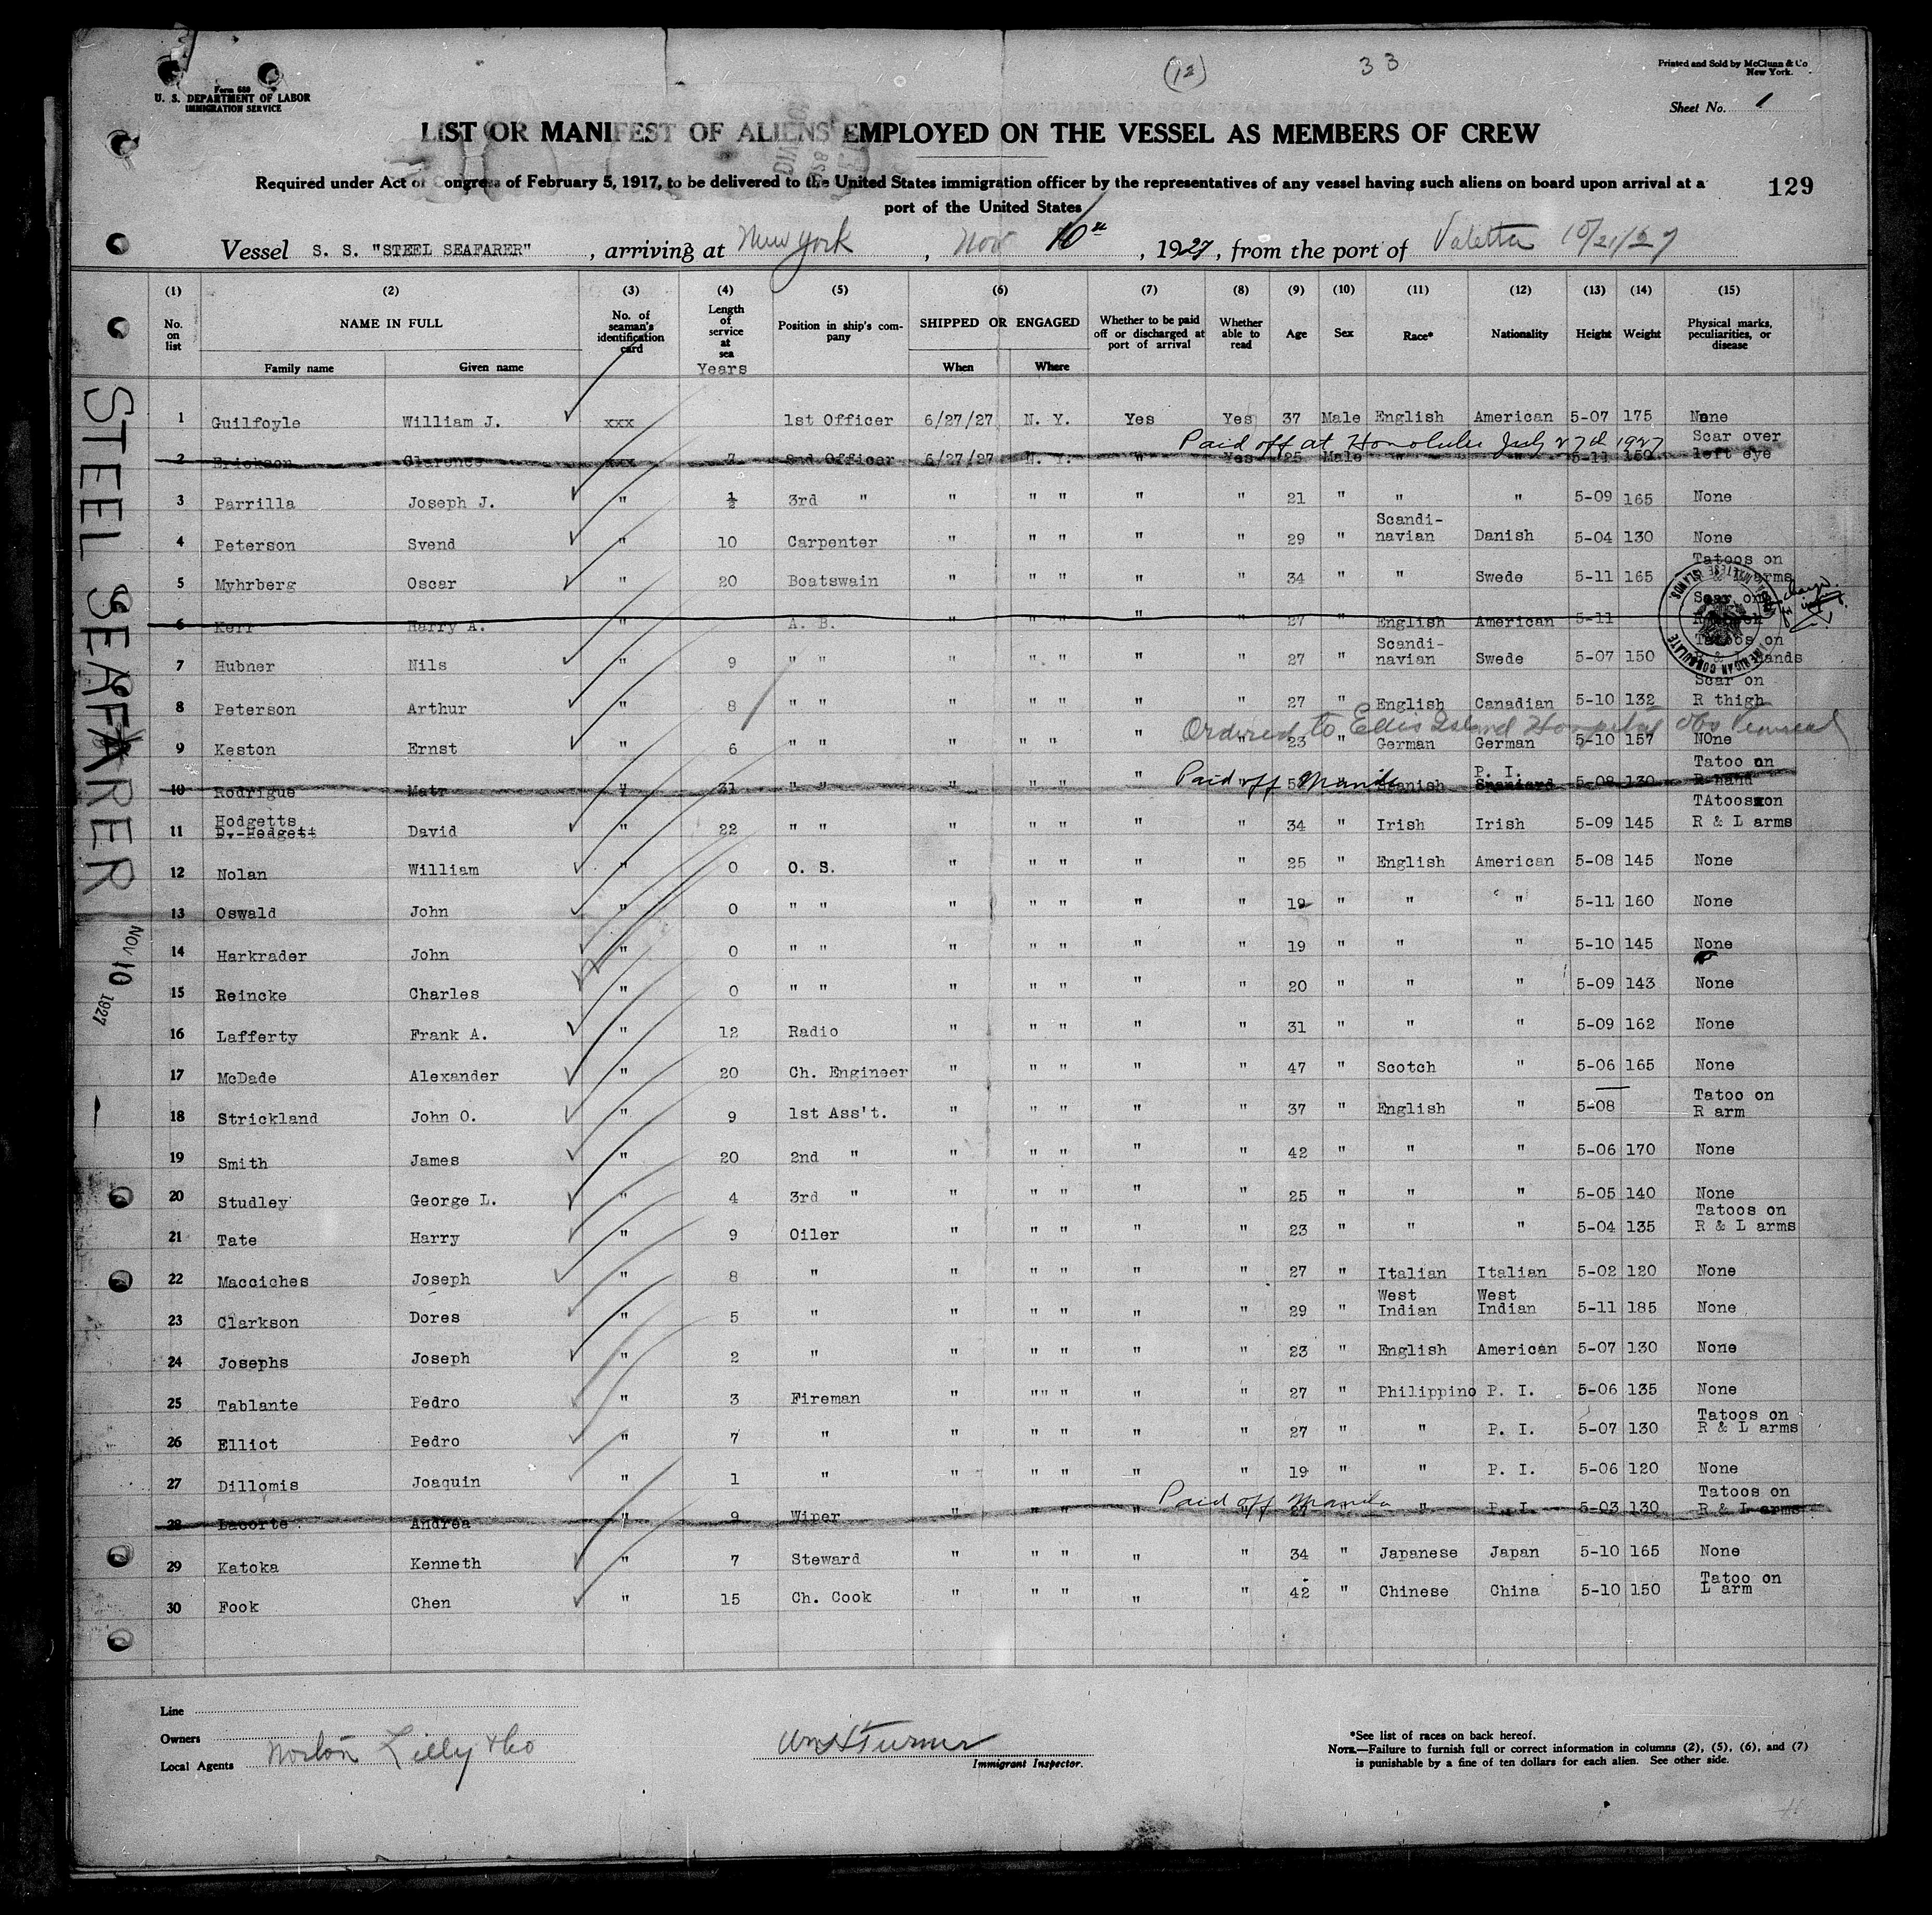 (12)
33
Printed and Sold by McClunn & Co
New York.
Form 689
U. S. DEPARTMENT OF LABOR
IMMIGRATION SERVICE
Sheet No. 1
LIST OR MANIFEST OF ALIENS EMPLOYED ON THE VESSEL AS MEMBERS OF CREW
Required under Act of Congress of February 5, 1917, to be delivered to the United States immigration officer by the representatives of any vessel having such aliens on board upon arrival at a
port of the United States
129
Vessel S. S. "STEEL SEAFARER", arriving at New York, Nov 10th, 1927, from the port of Valetta 10/21/27
(1) (2) (3) (4) (5) (6) (7) (8) (9) (10) (11) (12) (13) (14) (15)
No. on list NAME IN FULL Family name Given name No. of seaman's identification card Length of service at sea Years Position in ship's company SHIPPED OR ENGAGED When Where Whether to be paid off or discharged at port of arrival Whether able to read Age Sex Race* Nationality Height Weight Physical marks, peculiarities, or disease
1 Guilfoyle William J. xxx 1st Officer 6/27/27 N. Y. Yes Yes 37 Male English American 5-07 175 None
Paid off at Honolulu July 27th 1927
2 Erickson Clarence xxx 7 2nd Officer 6/27/27 N. Y. " Yes 25 Male " " 5-11 150 Scar over left eye
3 Parrilla Joseph J. " ½ 3rd " " " " " " 21 " " " 5-09 165 None
4 Peterson Svend " 10 Carpenter " " " " " 29 " Scandi-navian Danish 5-04 130 None
5 Myhrberg Oscar " 20 Boatswain " " " " " 34 " " Swede 5-11 165 Tatoos on arms
6 Kerr Harry A. " A. B. " " " " " 27 " English American 5-11 Scar on
7 Hubner Nils " 9 " " " " " " " 27 " Scandi-navian Swede 5-07 150 Tatoos on R & L hands
AMERICAN CONSULATE
8 Peterson Arthur " 8 " " " " " " " 27 " English Canadian 5-10 132 Scar on R thigh
Ordered to Ellis Island Hospital
9 Keston Ernst " 6 " " " " " " " 23 " German German 5-10 157 NOne
Paid off Manila
10 Rodrigue Matr " 31 " " " " " " " Spanish P. I. Spaniard 5-08 130 Tatoo on R hand
11 Hodgetts D. Hodgett David " 22 " " " " " " " 34 " Irish Irish 5-09 145 TAtoos on R & L arms
12 Nolan William " 0 O. S. " " " " " 25 " English American 5-08 145 None
13 Oswald John " 0 " " " " " " " 19 " " " 5-11 160 None
14 Harkrader John " 0 " " " " " " " 19 " " " 5-10 145 None
15 Reincke Charles " 0 " " " " " " " 20 " " " 5-09 143 None
16 Lafferty Frank A. " 12 Radio " " " " " 31 " " " 5-09 162 None
17 McDade Alexander " 20 Ch. Engineer " " " " " 47 " Scotch " 5-06 165 None
18 Strickland John O. " 9 1st Ass't. " " " " " 37 " English " 5-08 Tatoo on R arm
19 Smith James " 20 2nd " " " " " " 42 " " " 5-06 170 None
20 Studley George L. " 4 3rd " " " " " " 25 " " " 5-05 140 None
21 Tate Harry " 9 Oiler " " " " " 23 " " " 5-04 135 Tatoos on R & L arms
22 Macciches Joseph " 8 " " " " " " 27 " Italian Italian 5-02 120 None
23 Clarkson Dores " 5 " " " " " " 29 " West Indian West Indian 5-11 185 None
24 Josephs Joseph " 2 " " " " " " 23 " English American 5-07 130 None
25 Tablante Pedro " 3 Fireman " "" " " " 27 " Philippino P. I. 5-06 135 None
26 Elliot Pedro " 7 " " " " " " 27 " " P. I. 5-07 130 Tatoos on R & L arms
27 Dillomis Joaquin " 1 " " " " " " 19 " " P. I. 5-06 120 None
Paid off Manila
28 Lacorte Andrea " 9 Wiper " " " " " 27 " " P. I. 5-03 130 Tatoos on R & L arms
29 Katoka Kenneth " 7 Steward " " " " " 34 " Japanese Japan 5-10 165 None
30 Fook Chen " 15 Ch. Cook " " " " " 42 " Chinese China 5-10 150 Tatoo on L arm
STEEL SEAFARER
NOV 10 1927
Line
Owners
Local Agents Norton Lilly & Co
Wm H Turner
Immigrant Inspector.
*See list of races on back hereof.
NOTE.—Failure to furnish full or correct information in columns (2), (5), (6), and (7)
is punishable by a fine of ten dollars for each alien. See other side.